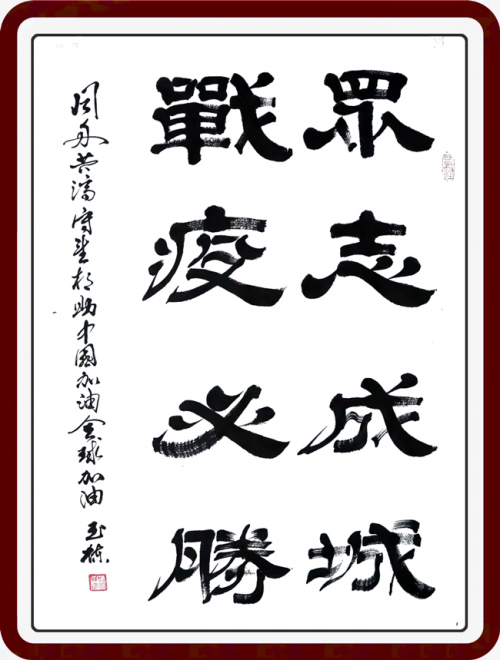 眾志成城
戰疫必勝
同舟共濟守望相助中國加油全球加油